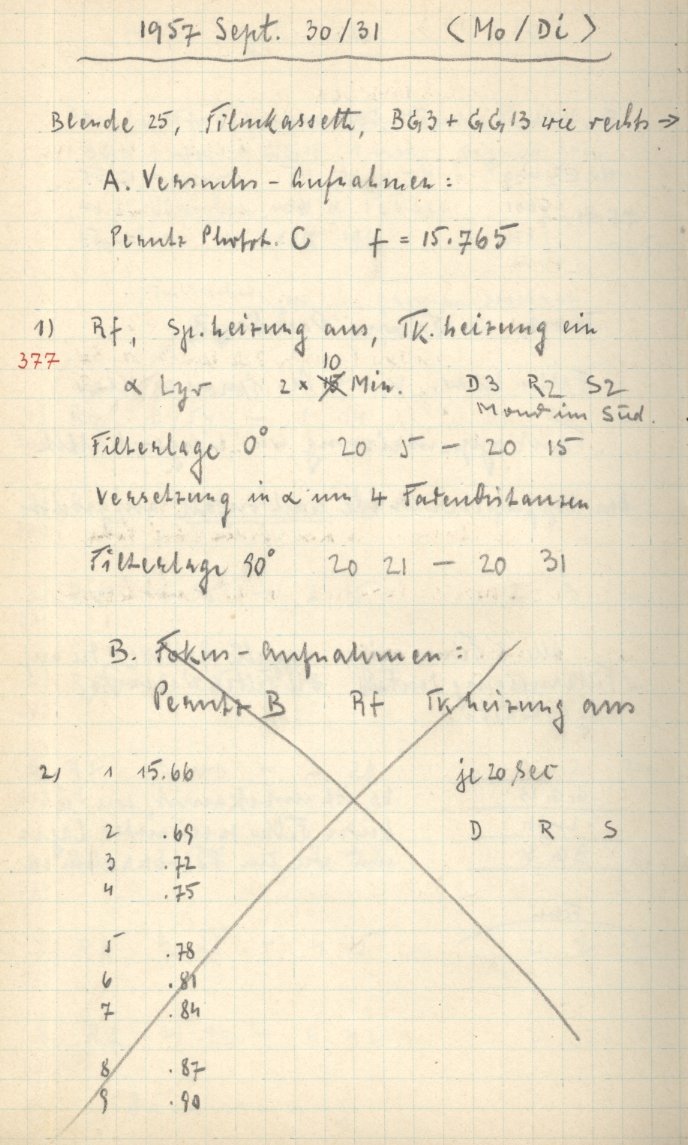 1957 Sept. 30/31 (Mo/Di)
Blende 25, Filmkassette, BG3 + GG13 wie rechts →
A. Versuchs-Aufnahmen:
Perutz Phofrt. C f = 15.765
1) Rf, Sp.heizung aus, TK.heizung ein
377
10
α Lyr 2 × Min. D3 R2 S2
Mond im Süd.
Filterlage 0° 20 5 — 20 15
Versetzung in α um 4 Fadendistanzen
Filterlage 90° 20 21 — 20 31
B. Fokus-Aufnahmen:
Perutz B Rf TK heizung aus
2) 1 15.66 je 20 Sec
2 .69 D R S
3 .72
4 .75
5 .78
6 .81
7 .84
8 .87
9 .90